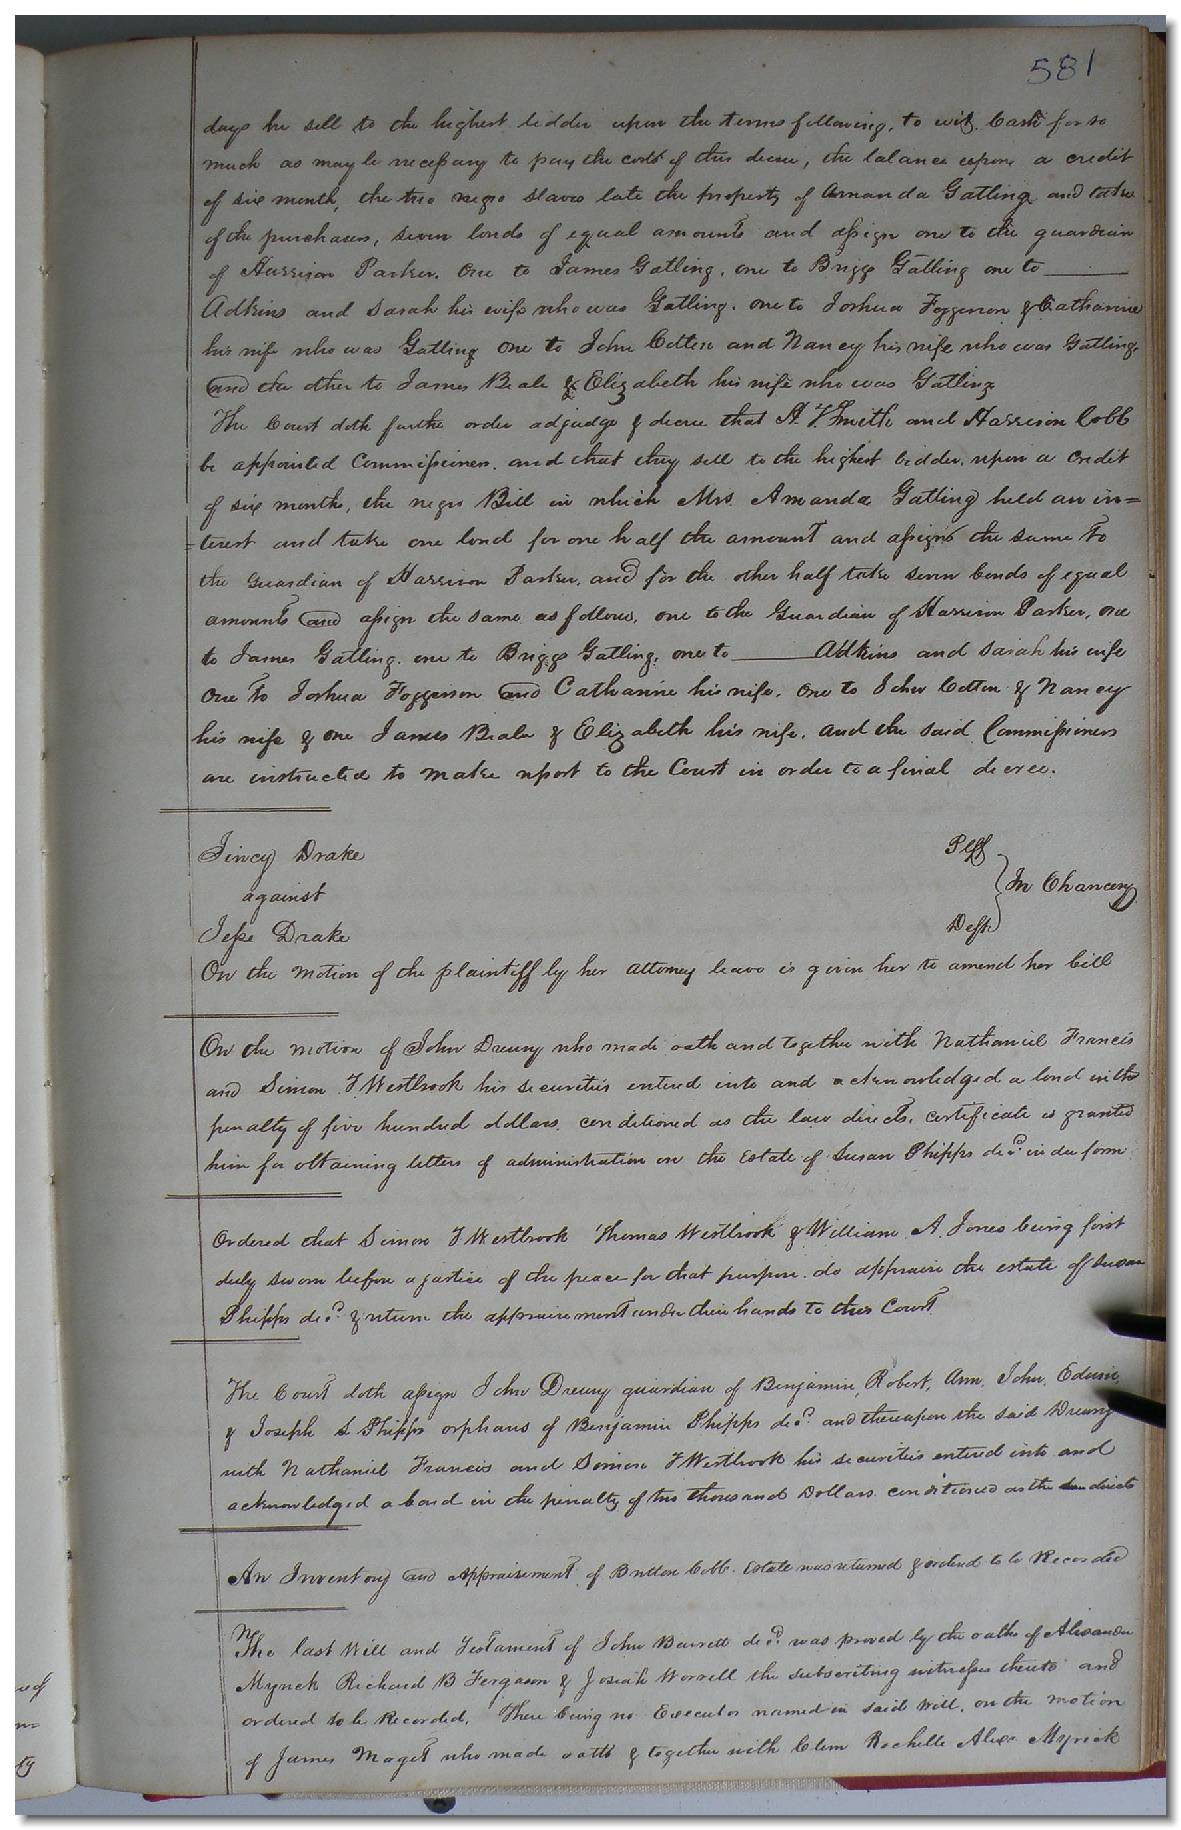 581
days he sell to the highest bidder upon the terms following, to wit, Cash for so
much as may be necessary to pay the costs of this decree, the balance upon a credit
of six month, the two negro slaves late the property of Amanda Gatling and take
of the purchasers, seven bonds of equal amounts and assign one to the guardian
of Harrison Parker. One to James Gatling, one to Briggs Gatling one to ______
Adkins and Sarah his wife who was Gatling. one to Joshua Foggerson & Catharine
his wife who was Gatling one to John Cotten and Nancy his wife who was Gatling,
and the other to James Beale & Elizabeth his wife who was Gatling
The Court doth further order adjudge & decree that A Smith and Harrison Cobb
be appointed Commissioners. and that they sell to the highest bidder, upon a Credit
of six months, the negro Bill in which Mrs. Amanda Gatling held an in=
=terest and take one bond for one half the amount and assign the same to
the Guardian of Harrison Parker, and for the other half take seven bonds of equal
amounts and assign the same as follows, one to the Guardian of Harrison Parker, one
to James Gatling. one to Briggs Gatling, one to ______ Adkins and Sarah his wife
One to Joshua Foggerson and Catharine his wife. One to John Cotten & Nancy
his wife & one James Beale & Elizabeth his wife. and the said Commissioners
are instructed to make report to the Court in order to a final decree.
Jincy Drake Plff
against In Chancery
Jesse Drake Deft
On the motion of the plaintiff by her attorney leave is given her to amend her bill
On the motion of John Drewry who made oath and together with Nathaniel Francis
and Simon T Westbrook his securities entered into and acknowledged a bond in the
penalty of five hundred dollars. conditioned as the law directs, certificate is granted
him for obtaining letters of administration on the Estate of Susan Phipps decd in due form
Ordered that Simon T Westbrook Thomas Westbrook & William A. Jones being first
duly sworn before a justice of the peace for that purpose. do appraise the estate of Susan
Phipps decd & return the appraisement under their hands to this Court
The Court doth assign John Drewry guardian of Benjamin, Robert, Ann, John, Edwin,
& Joseph S Phipps orphans of Benjamin Phipps decd and thereupon the said Drewry
with Nathaniel Francis and Simon T Westbrook his securities entered into and
acknowledged a bond in the penalty of two thousand Dollars conditioned as the law directs
An Inventory and Appraisement of Britton Cobb. Estate was returned & ordered to be Recorded
The last Will and Testament of John Barrett decd was proved by the oaths of Alexander
Myrick Richard B Fergason & Josiah Worrell the subscribing witnesses thereto and
ordered to be Recorded, There being no Executor named in said Will, on the motion
of James Maget who made oath & together with Clem Rochelle Alexr Myrick